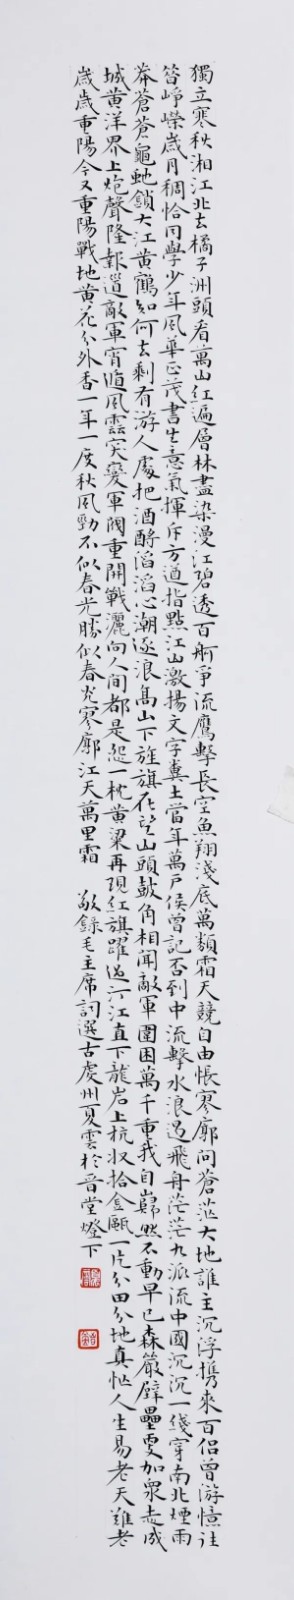 獨立寒秋湘江北去橘子洲頭看萬山紅遍層林盡染漫江碧透百舸爭流鷹擊長空魚翔淺底萬類霜天競自由悵寥廓問蒼茫大地誰主沉浮攜來百侶曾游憶往
昔崢嶸歲月稠恰同學少年風華正茂書生意氣揮斥方遒指點江山激揚文字糞土當年萬戶侯曾記否到中流擊水浪遏飛舟茫茫九派流中國沉沉一綫穿南北煙雨
莽蒼蒼龜虵鎖大江黃鶴知何去剩有游人處把酒酹滔滔心潮逐浪高山下旌旗在望山頭鼓角相聞敵軍圍困萬千重我自巋然不動早已森嚴壁壘更加衆志成
城黃洋界上炮聲隆報道敵軍宵遁風雲突變軍閥重開戰灑向人间都是怨一枕黃粱再現紅旗躍過汀江直下龍岩上杭収拾金甌一片分田分地真忙人生易老天難老
歲歲重陽今又重陽戰地黃花分外香一年一度秋風勁不似春光勝似春光寥廓江天萬里霜 敬錄毛主席詞選古處州夏雲於晉堂燈下